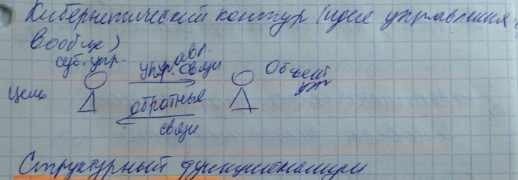 Кибернетический контур (идея управления
вообще)
суб. упр.
упр. связи
Объект
упр
Цель
обратные
связи
Структурный функционализм